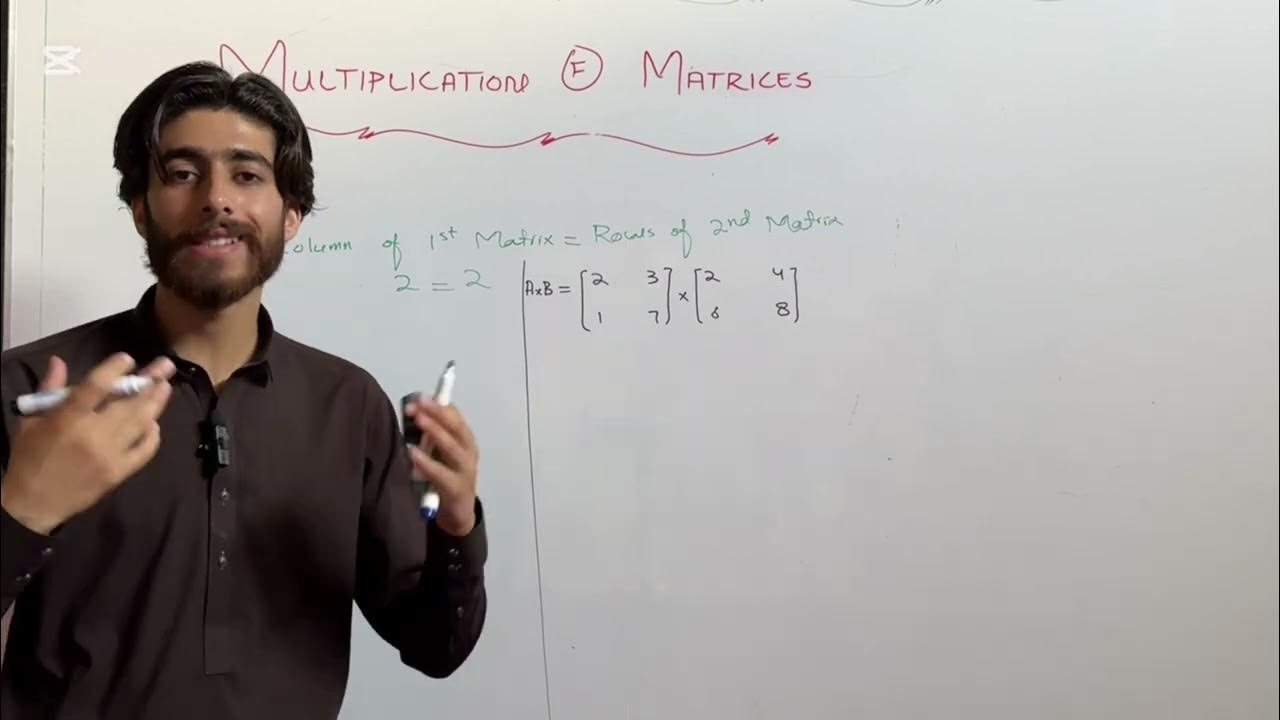 MULTIPLICATION OF MATRICES
Column of 1st Matrix = Rows of 2nd Matrix
2 = 2
A×B = [2 3] × [2 4]
[1 7] [6 8]